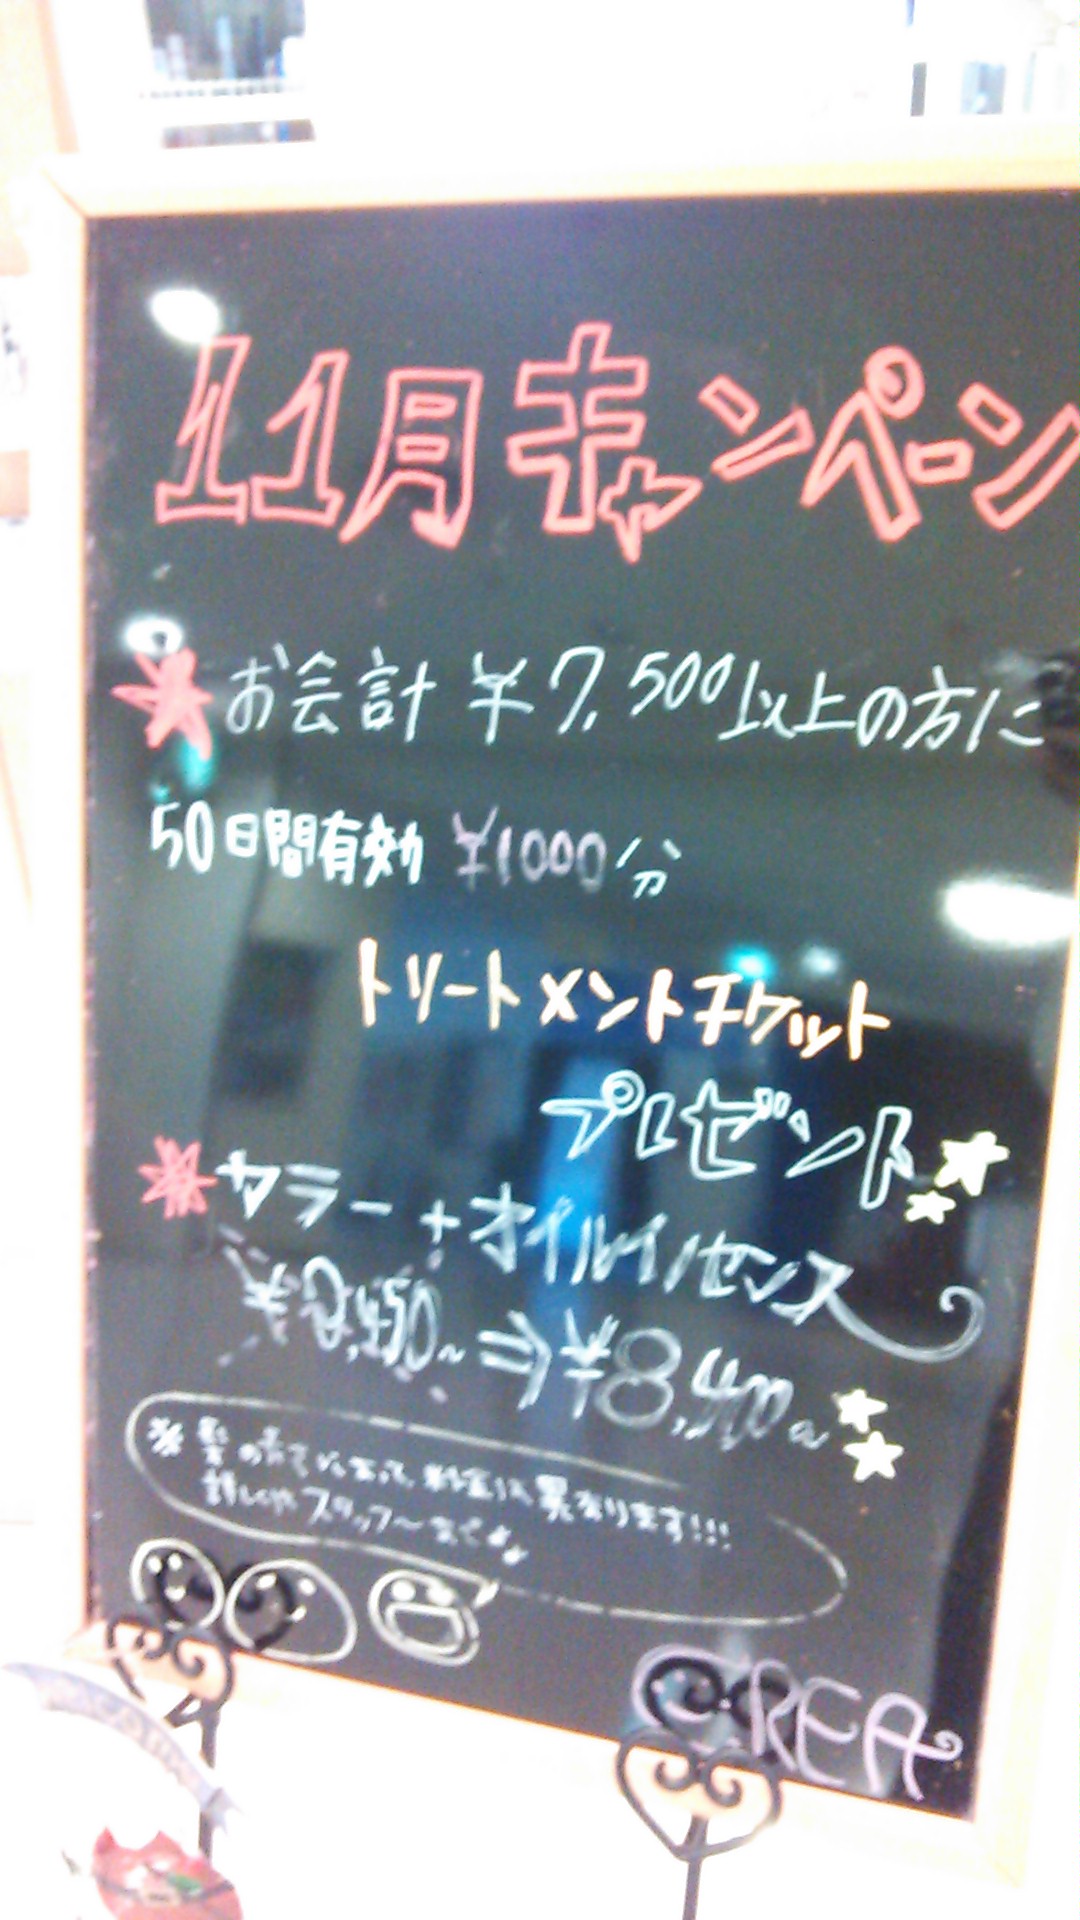 11月キャンペーン
お会計 ¥7,500以上の方に
50日間有効 ¥1000分
トリートメントチケット
プレゼント
カラー+オイルイノセンス
⇒¥8,400
※髪の長さによって料金は異なります!!!
詳しくはスタッフ〜まで♪
CREA